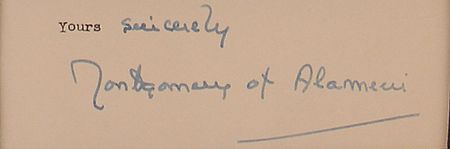 Yours sincerely
Montgomery of Alamein